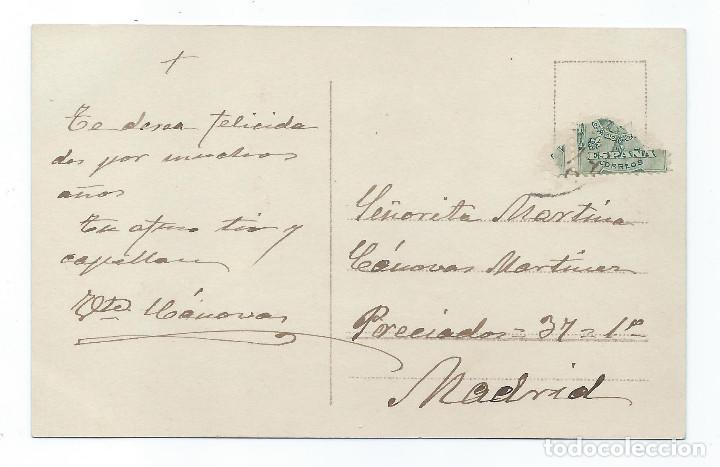 +
Te desea felicida
des por muchos
años
Tu afmo tio y
capellan
Vte Cánovas
ESPAÑA
CORREOS
Señorita Martina
Cánovas Martinez
Preciados = 37 = 1º
Madrid
todocoleccion
todocoleccion.net